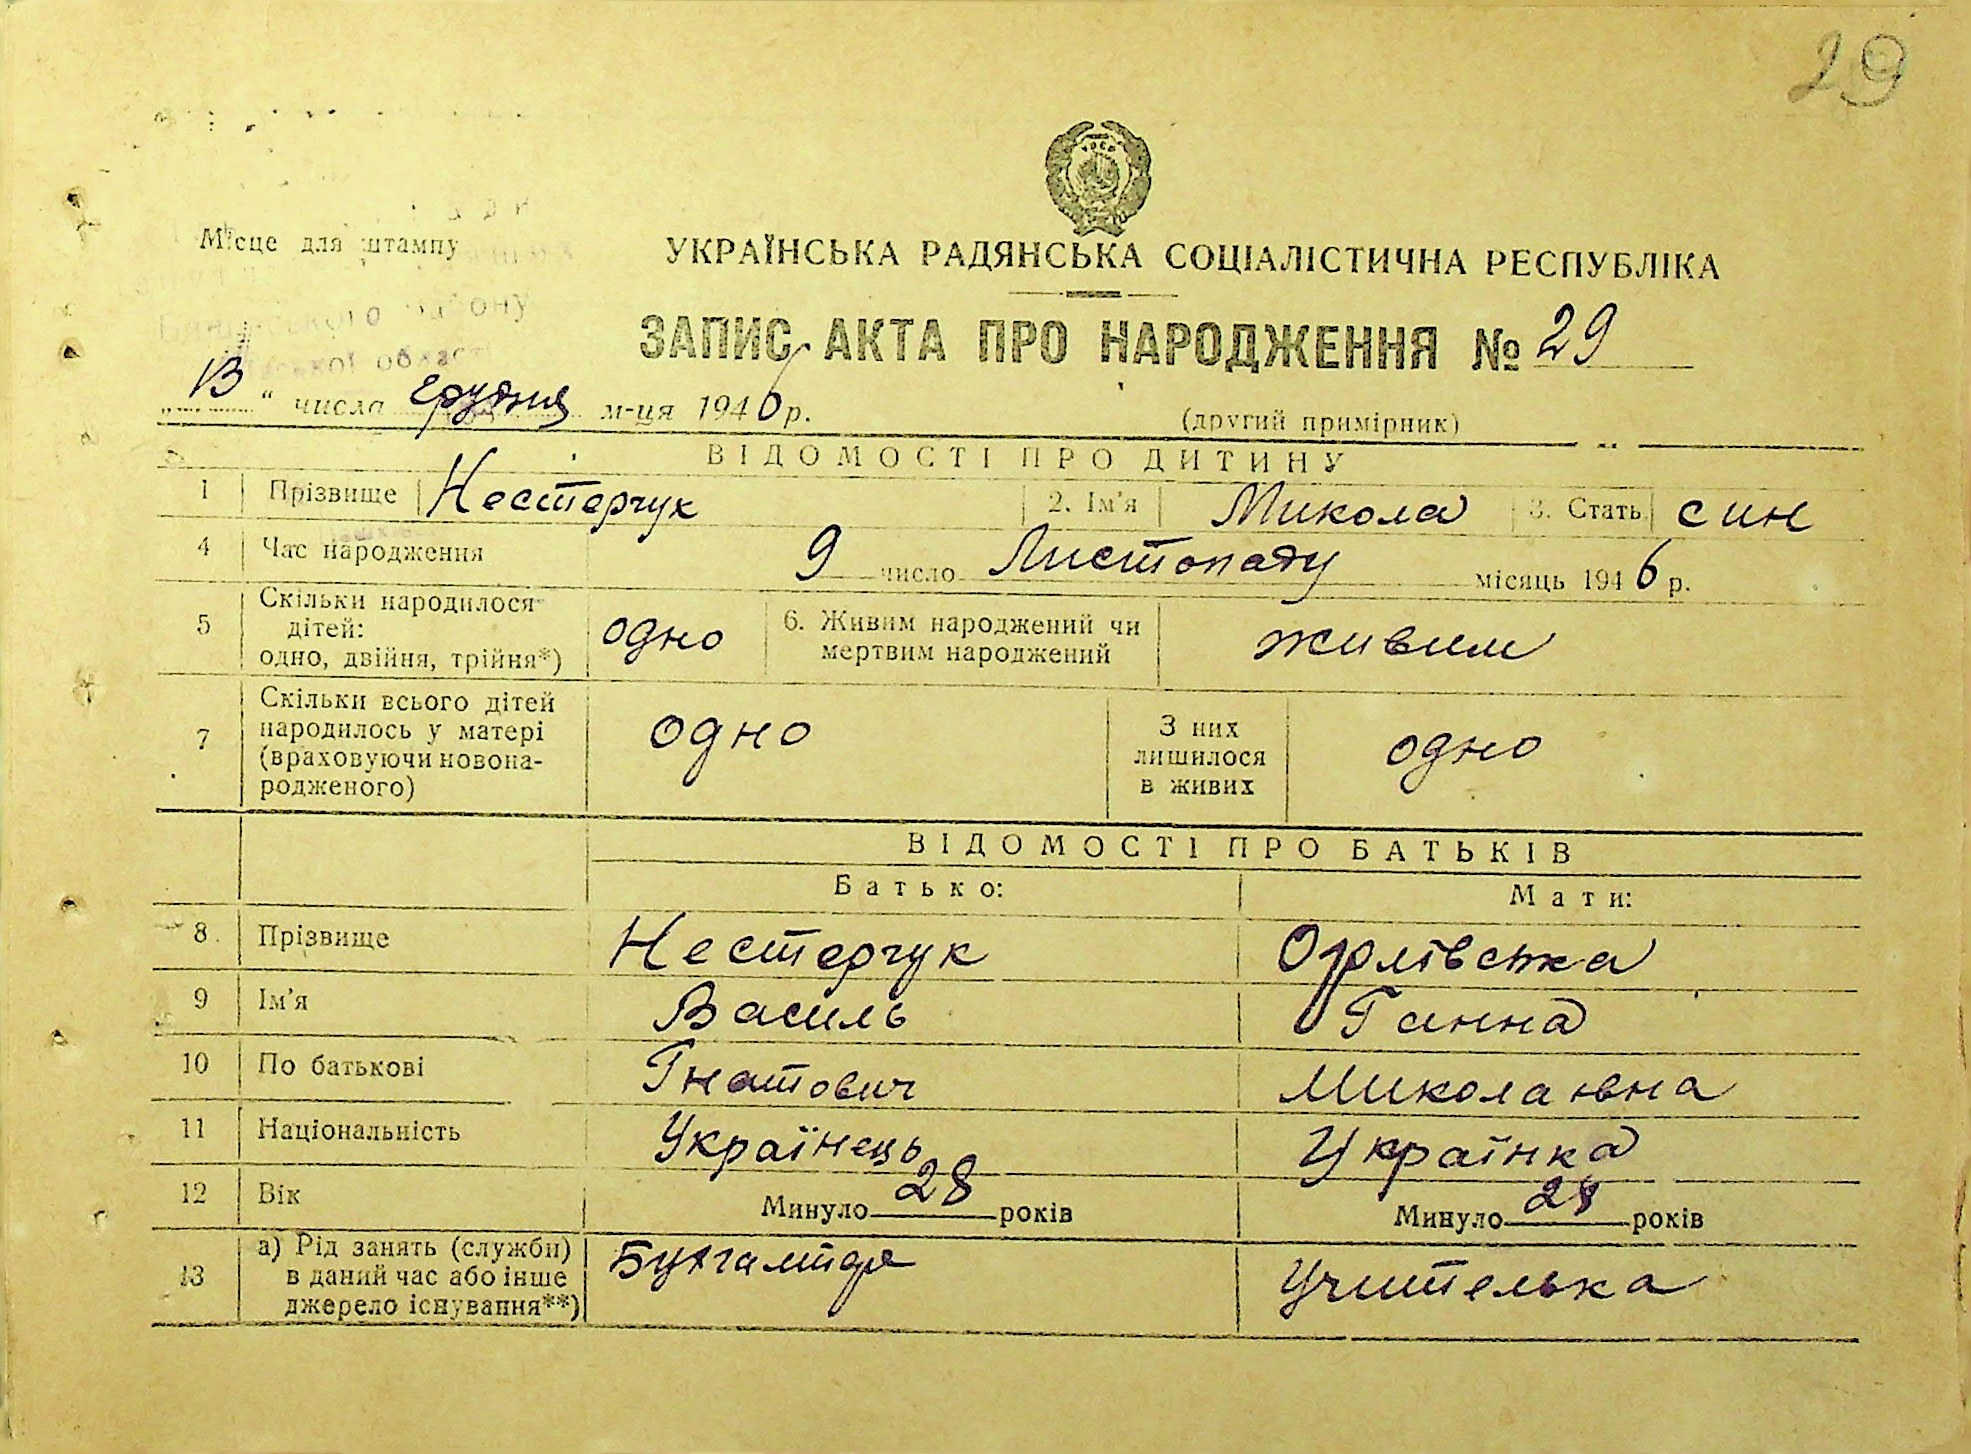 29
УРСР
Місце для штампу
УКРАЇНСЬКА РАДЯНСЬКА СОЦІАЛІСТИЧНА РЕСПУБЛІКА
ЗАПИС АКТА ПРО НАРОДЖЕННЯ № 29
району
області
„13“ числа грудня м-ця 1946 р.
(другий примірник)
ВІДОМОСТІ ПРО ДИТИНУ
1 Прізвище Нестерчук 2. Ім'я Микола 3. Стать син
4 Час народження 9 число Листопаду місяць 1946 р.
5 Скільки народилося дітей: одно, двійня, трійня*) одно 6. Живим народжений чи мертвим народжений живим
7 Скільки всього дітей народилось у матері (враховуючи новонародженого) одно З них лишилося в живих одно
ВІДОМОСТІ ПРО БАТЬКІВ
Батько: Мати:
8. Прізвище Нестерчук Орлівська
9 Ім'я Василь Ганна
10 По батькові Гнатович Миколаївна
11 Національність Українець Українка
12 Вік Минуло 28 років Минуло 28 років
13 а) Рід занять (служби) в даний час або інше джерело існування**) Бухгалтер Учителька